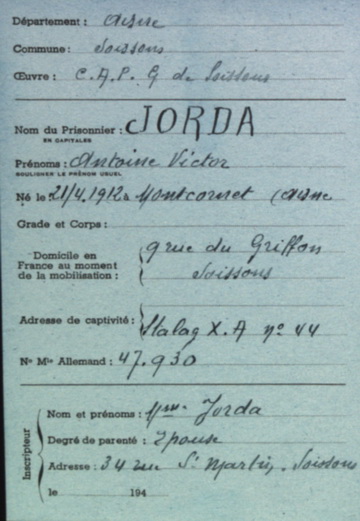 Département : Aisne
Commune : Soissons
Œuvre : C.A.P.G de Soissons
Nom du Prisonnier : JORDA
EN CAPITALES
Prénoms : Antoine Victor
SOULIGNER LE PRÉNOM USUEL
Né le 21/4.1912 à Montcornet (Aisne
Grade et Corps :
Domicile en
France au moment
de la mobilisation :
9 rue du Griffon
Soissons
Adresse de captivité : Stalag X.A n° 44
N° Mle Allemand : 47.930
Inscripteur
Nom et prénoms : Mme Jorda
Degré de parenté : Epouse
Adresse : 34 rue St Martin, Soissons
le 194